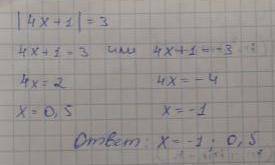 |4x+1|=3
4x+1=3 или 4x+1=-3
4x=2 4x=-4
x=0,5 x=-1
Ответ: x=-1; 0,5